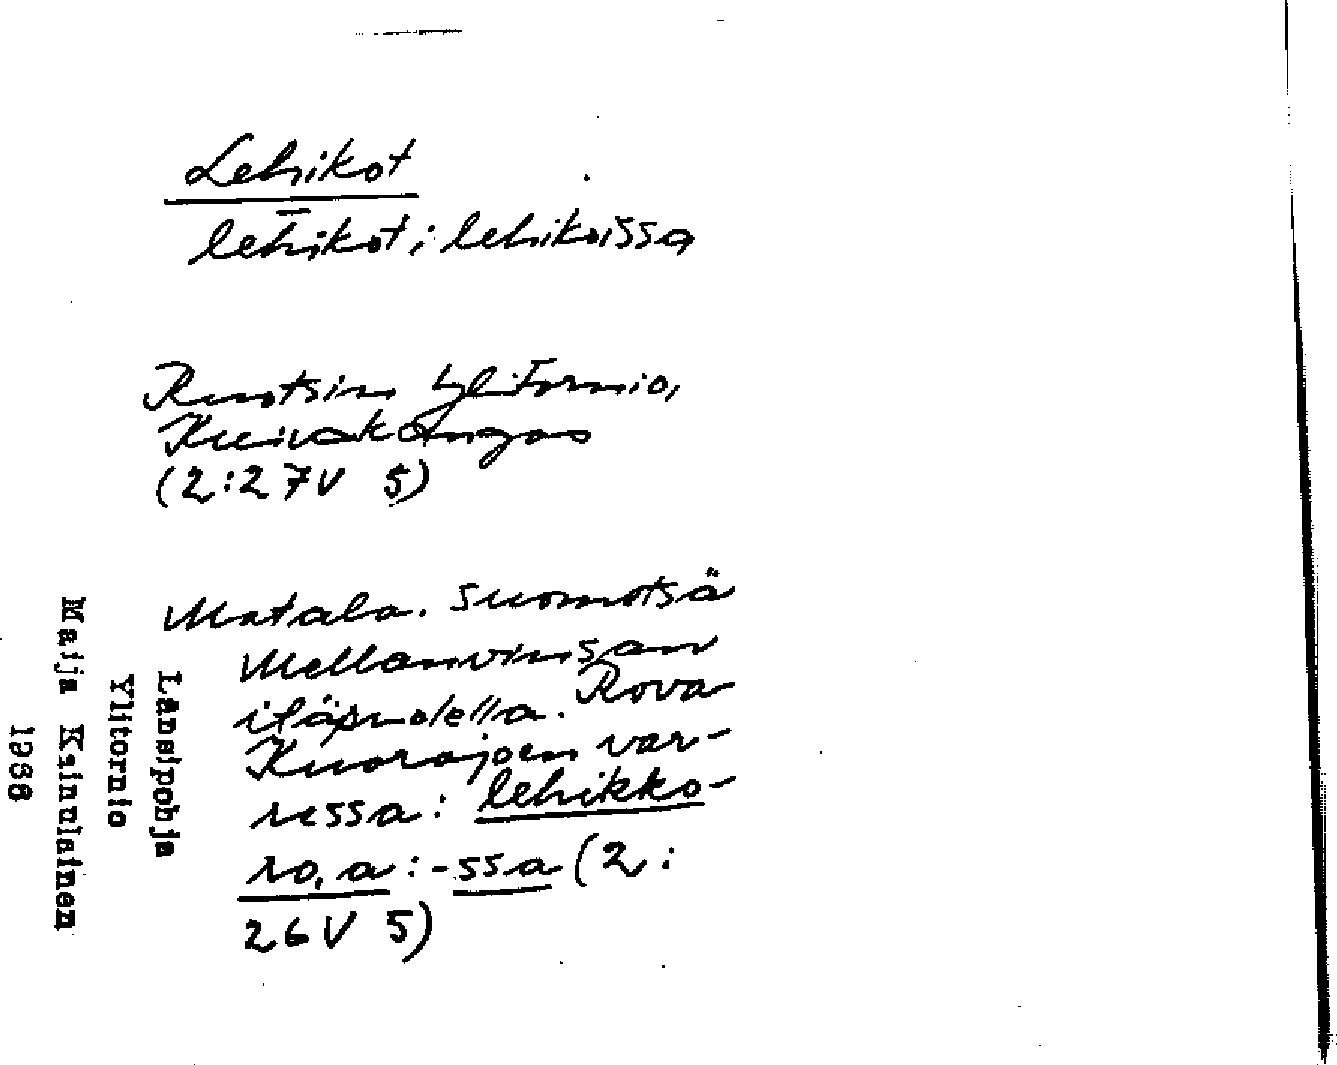 Lehikot
leh̄ikot: lehikoissa
Ruotsin Ylitornio,
Kuivakangas
(2:27V 5)
Matala. suometsä
Mellanvinsan
itäpuolella. Rova
Kuorajoen var-
ressa: lehikko-
ro,a: -ssa (2:
26V 5)
Länsipohja
Ylitornio
Maija Kainulainen
1968